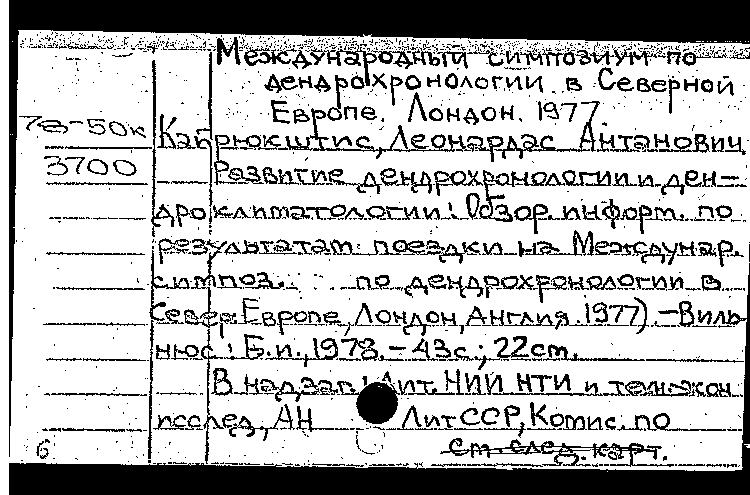 Международный симпозиум по
дендрохронологии в Северной
Европе. Лондон. 1977.
78-50к
Кайрюкштис, Леонардас Антанович
3700
Развитие дендрохронологии и ден-
дроклиматологии: Обзор. информ. по
результатам поездки на Междунар.
симпоз. по дендрохронологии в
Север. Европе, Лондон, Англия. 1977). - Виль-
нюс: Б.и., 1978. - 43с.; 22см.
В надзаг.: Лит. НИИ НТИ и техн.-экон.
исслед., АН ЛитССР, Комис. по
6
см. след. карт.